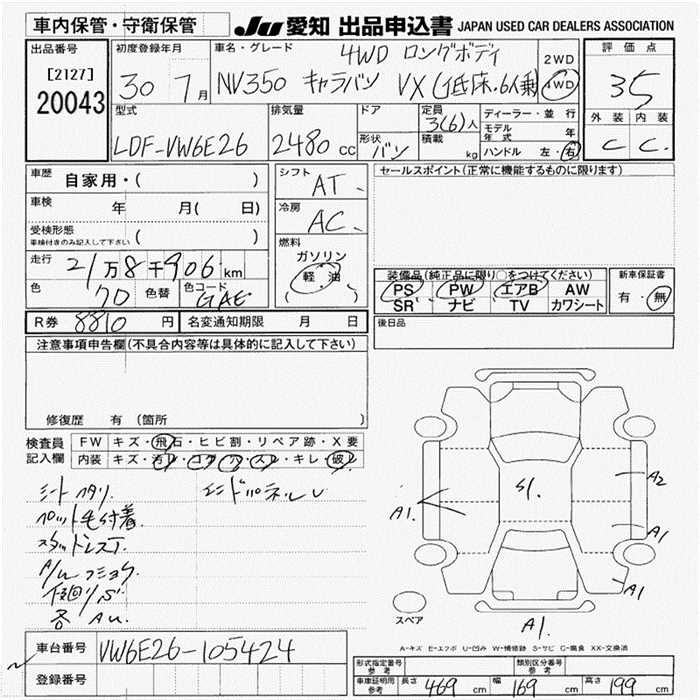 車内保管・守衛保管
JU 愛知 出品申込書 JAPAN USED CAR DEALERS ASSOCIATION
出品番号
[2127]
20043
初度登録年月
30 7月
車名・グレード
4WD ロングボディ
NV350 キャラバン VX(低床.6人乗
2WD
4WD
評価点
3.5
外装 内装
C C.
型式
LDF-VW6E26
排気量
2480 cc
ドア
形状
バン
定員
3(6)人
積載
kg
ディーラー・並行
モデル年式 年
ハンドル 左・右
車歴 自家用・( )
車検 年 月( 日)
受検形態
車検付きのみ記入して下さい ( )
走行 21万8千906km
色 70 色替 色コード GAE
シフト
AT
冷房
AC
燃料
ガソリン
軽油
( )
セールスポイント(正常に機能するものに限ります)
装備品(純正品に限り○をつけてください)
PS PW エアB AW
SR ナビ TV カワシート
新車保証書
有・無
R券 8810円 名変通知期限 月 日
後日品
注意事項申告欄(不具合内容等は具体的に記入して下さい)
修復歴 有 (箇所 )
検査員記入欄
FW キズ・飛石・ヒビ割・リペア跡・X要
内装 キズ・汚レ・コゲ・穴・スレ・キレ・破レ
シートヘタリ.
ペット毛付着.
A1.
S1.
A2
A1
A1
A1.
スペア
A-キズ E-エクボ U-凹み W-補修跡 S-サビ C-腐食 XX-交換済
各 AU.
車台番号 VW6E26-105424
登録番号
形式指定番号 参考
類別区分番号 参考
車庫証明用 参考 長さ 469 cm 幅 169 cm 高さ 199 cm